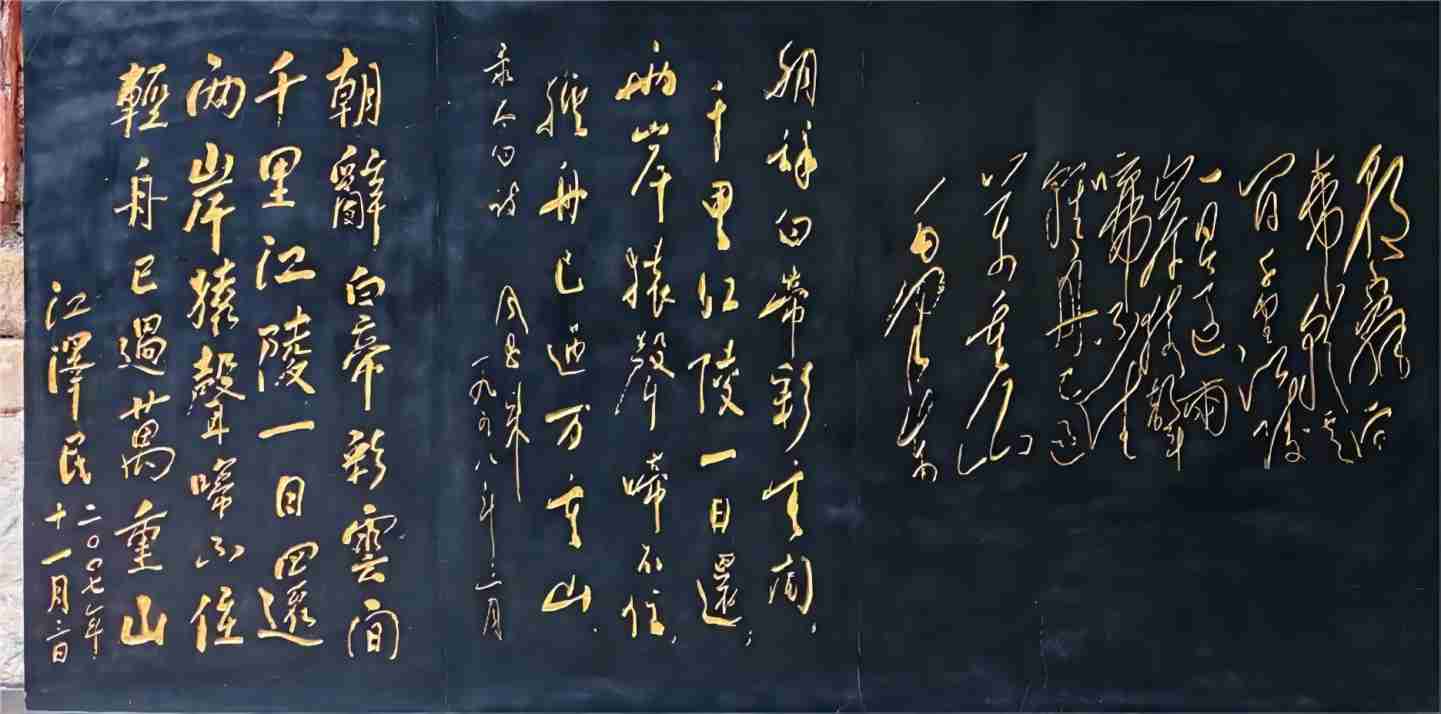 朝辭白
帝彩雲
間千里江陵
一日還兩
岸猿聲
啼不住
輕舟已過
萬重山
毛澤東
朝辞白帝彩雲间，
千里江陵一日還；
兩岸猿聲啼不住，
輕舟已过万重山．
录太白诗 周恩来
一九五八年三月
朝辭白帝彩雲間
千里江陵一日還
兩岸猿聲啼不住
輕舟已過萬重山
江澤民
二〇〇七年
十一月三日